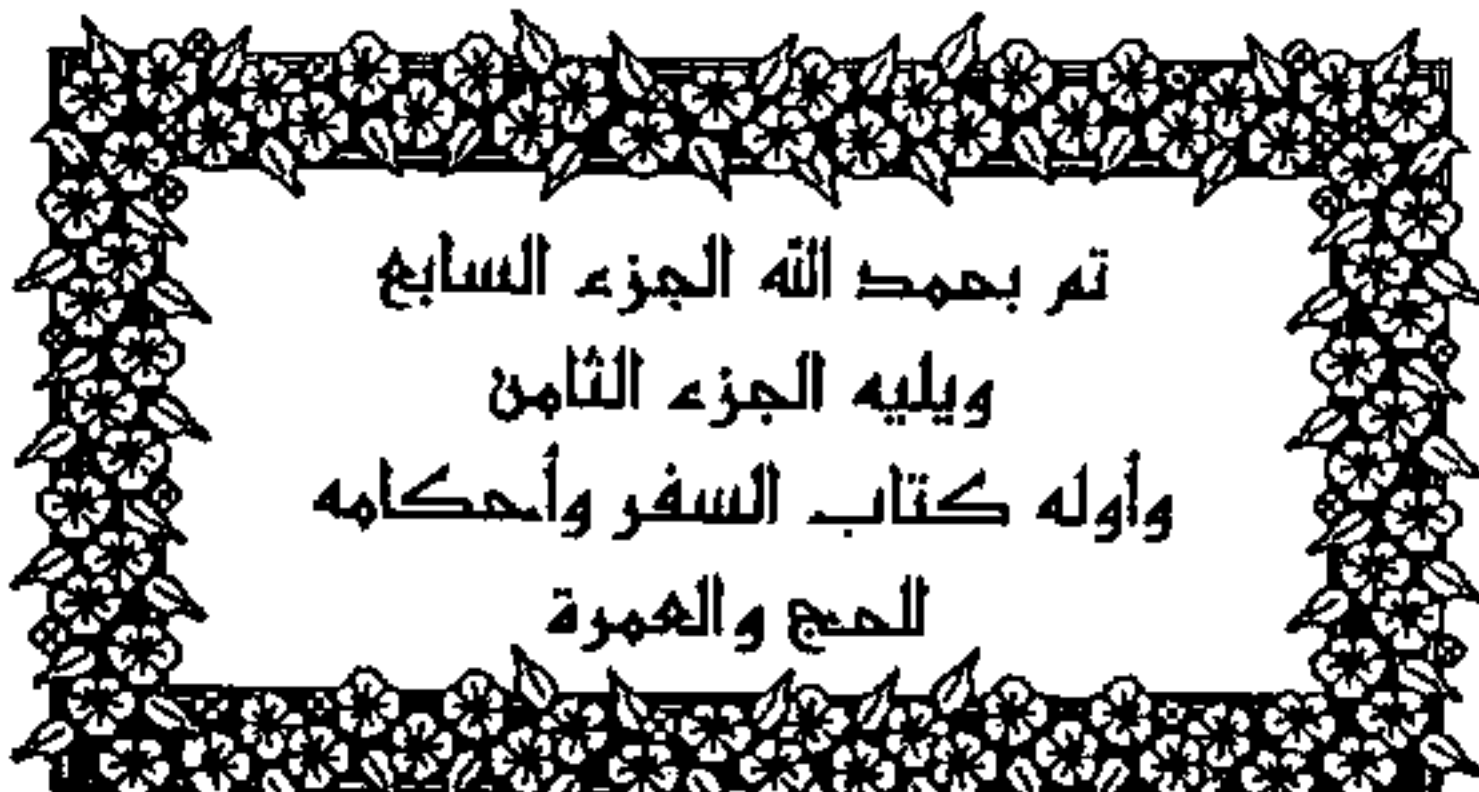 تم بحمد الله الجزء السابع
ويليه الجزء الثامن
وأوله كتاب السفر وأحكامه
للحج والعمرة